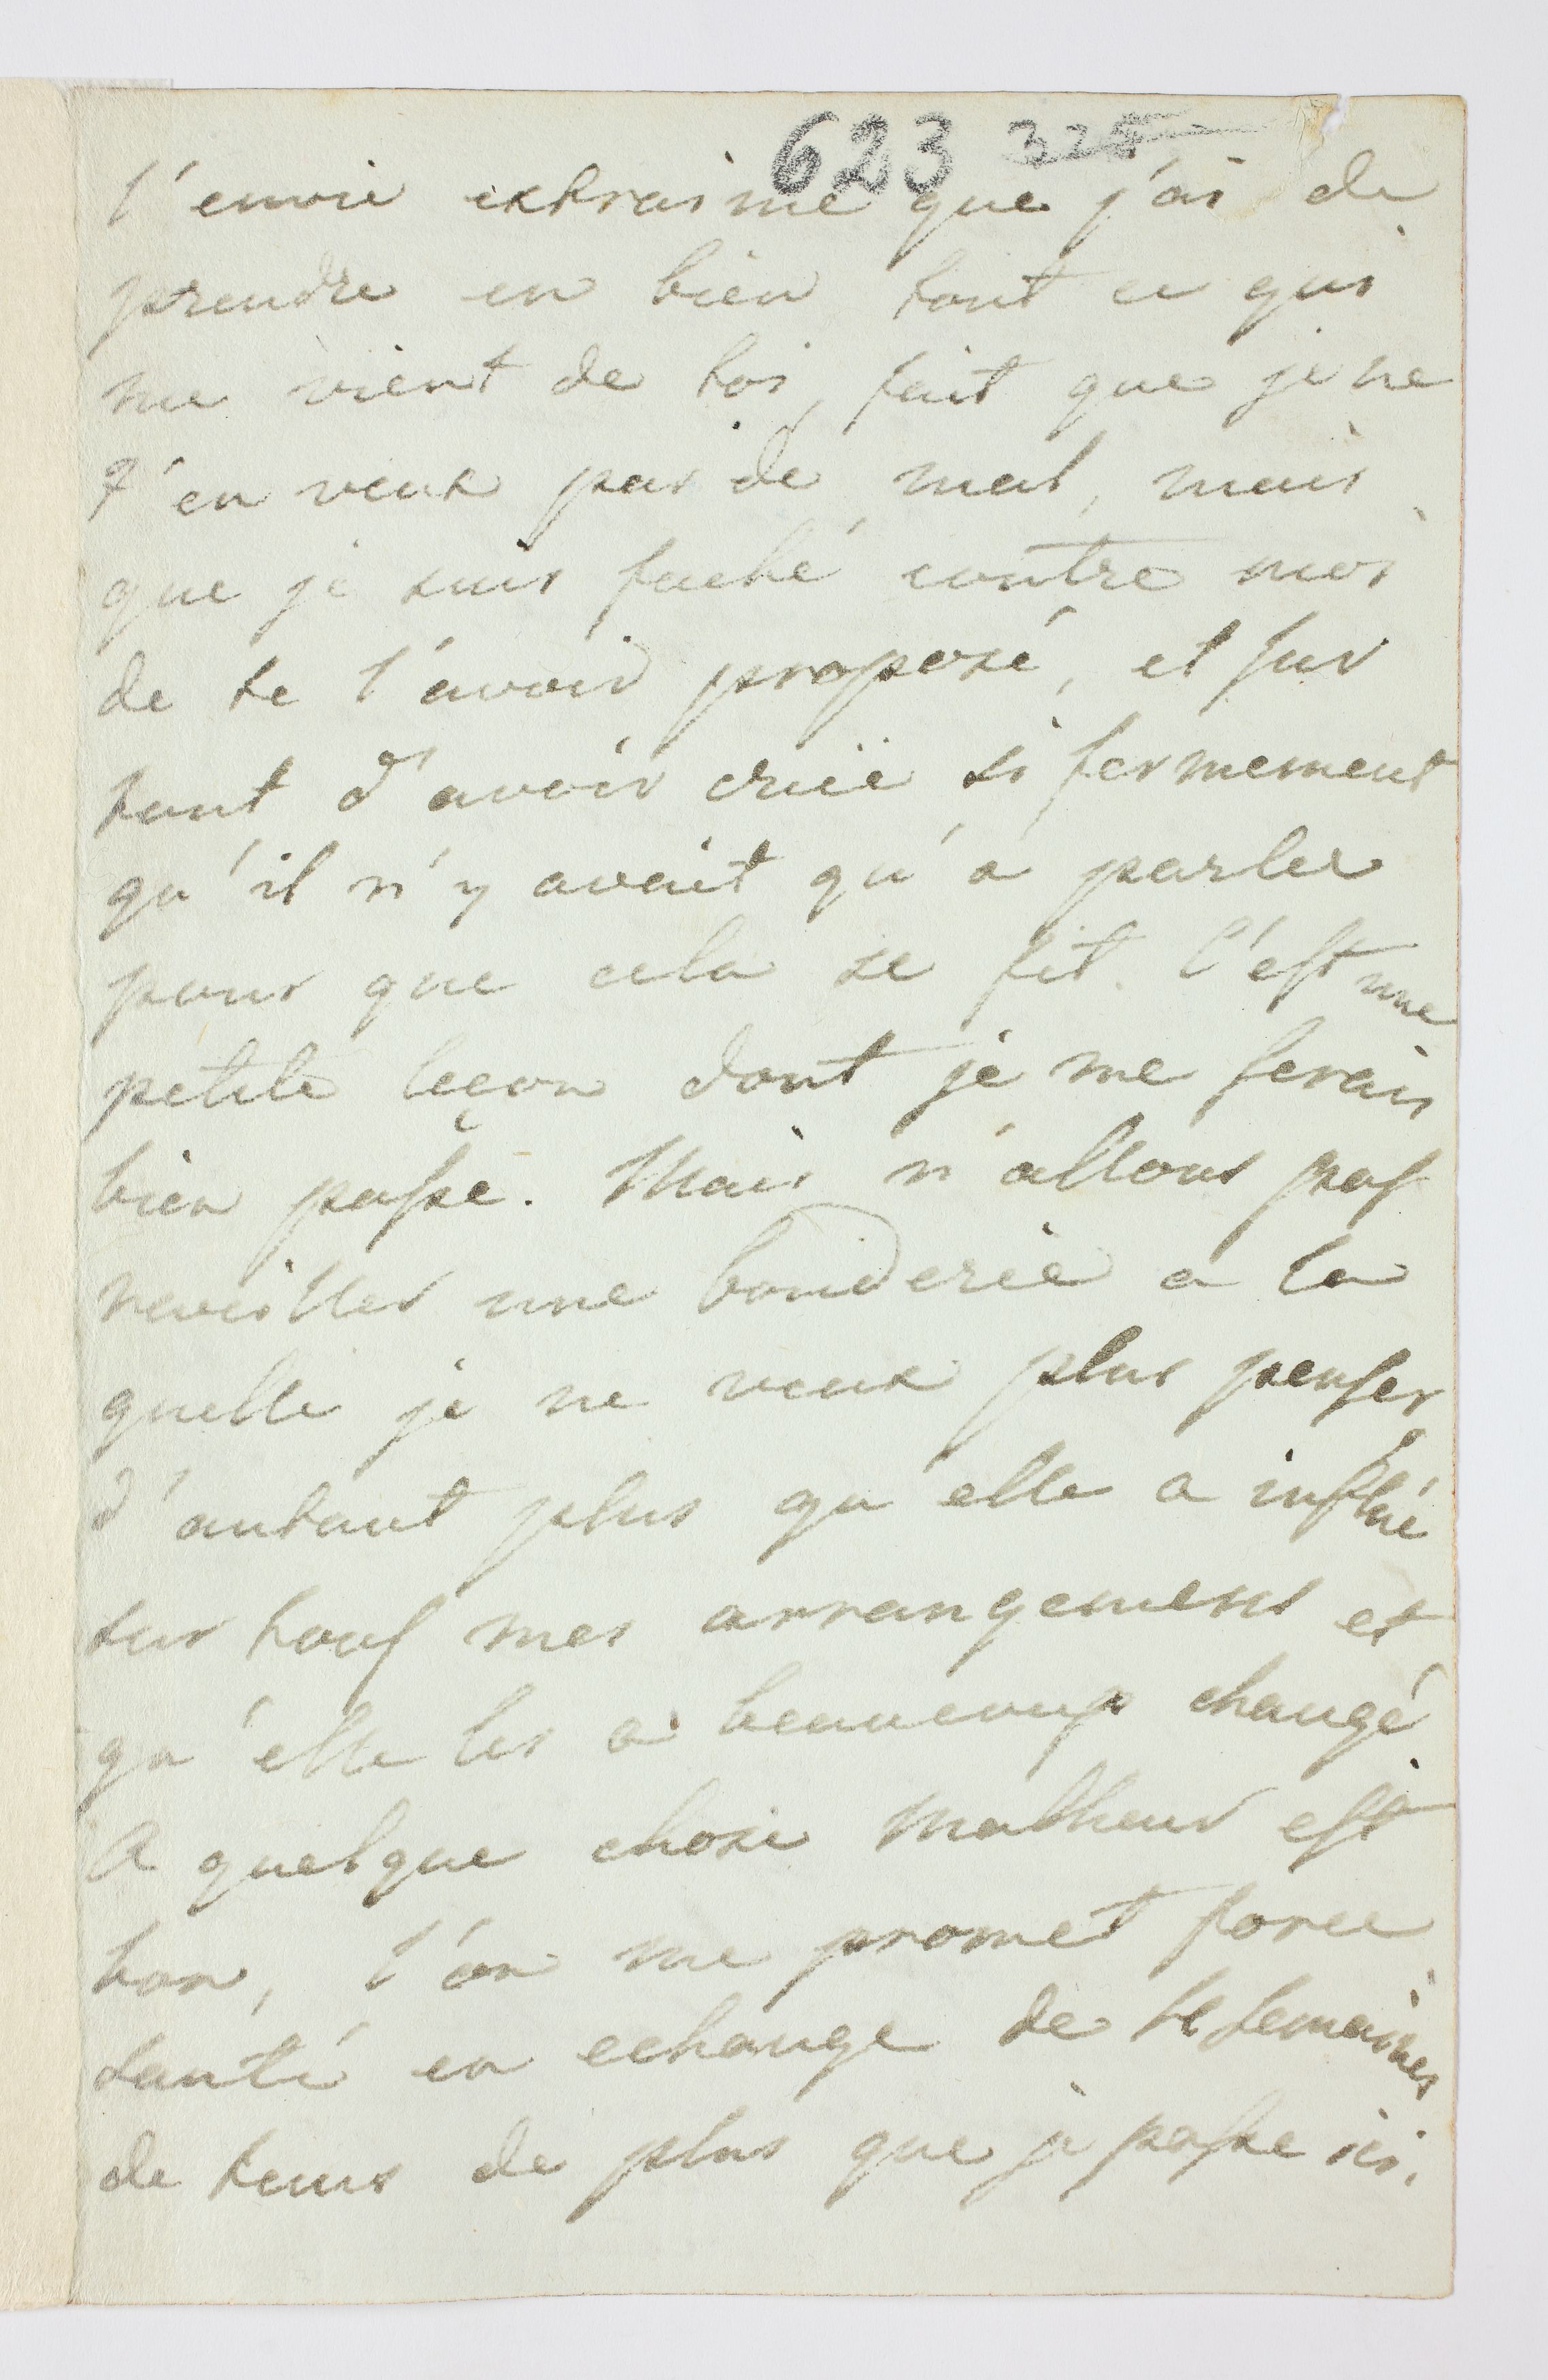 623 325
l'envie extraime que j'ai de
prendre en bien tout ce qui
me vient de toi, fait que je ne
t'en veux pas de mal, mais
que je suis faché contre moi
de te l'avoir proposé, et sur
tout d'avoir criië si fermement
qu'il n'y avait qu'a parler
pour que cela se fit. C'est une
petite leçon dont je me serais
bien passé. Mais n'allons pas
reveiller une bouderie a la
quelle je ne veux plus penser
d'autant plus qu'elle a influé
sur tous mes arrangemens et
qu'elle les a beaucoup changé.
A quelque chose malheur est
bon, l'on me promet force
santé en echange de semaines
de tems de plus que je passe ici.